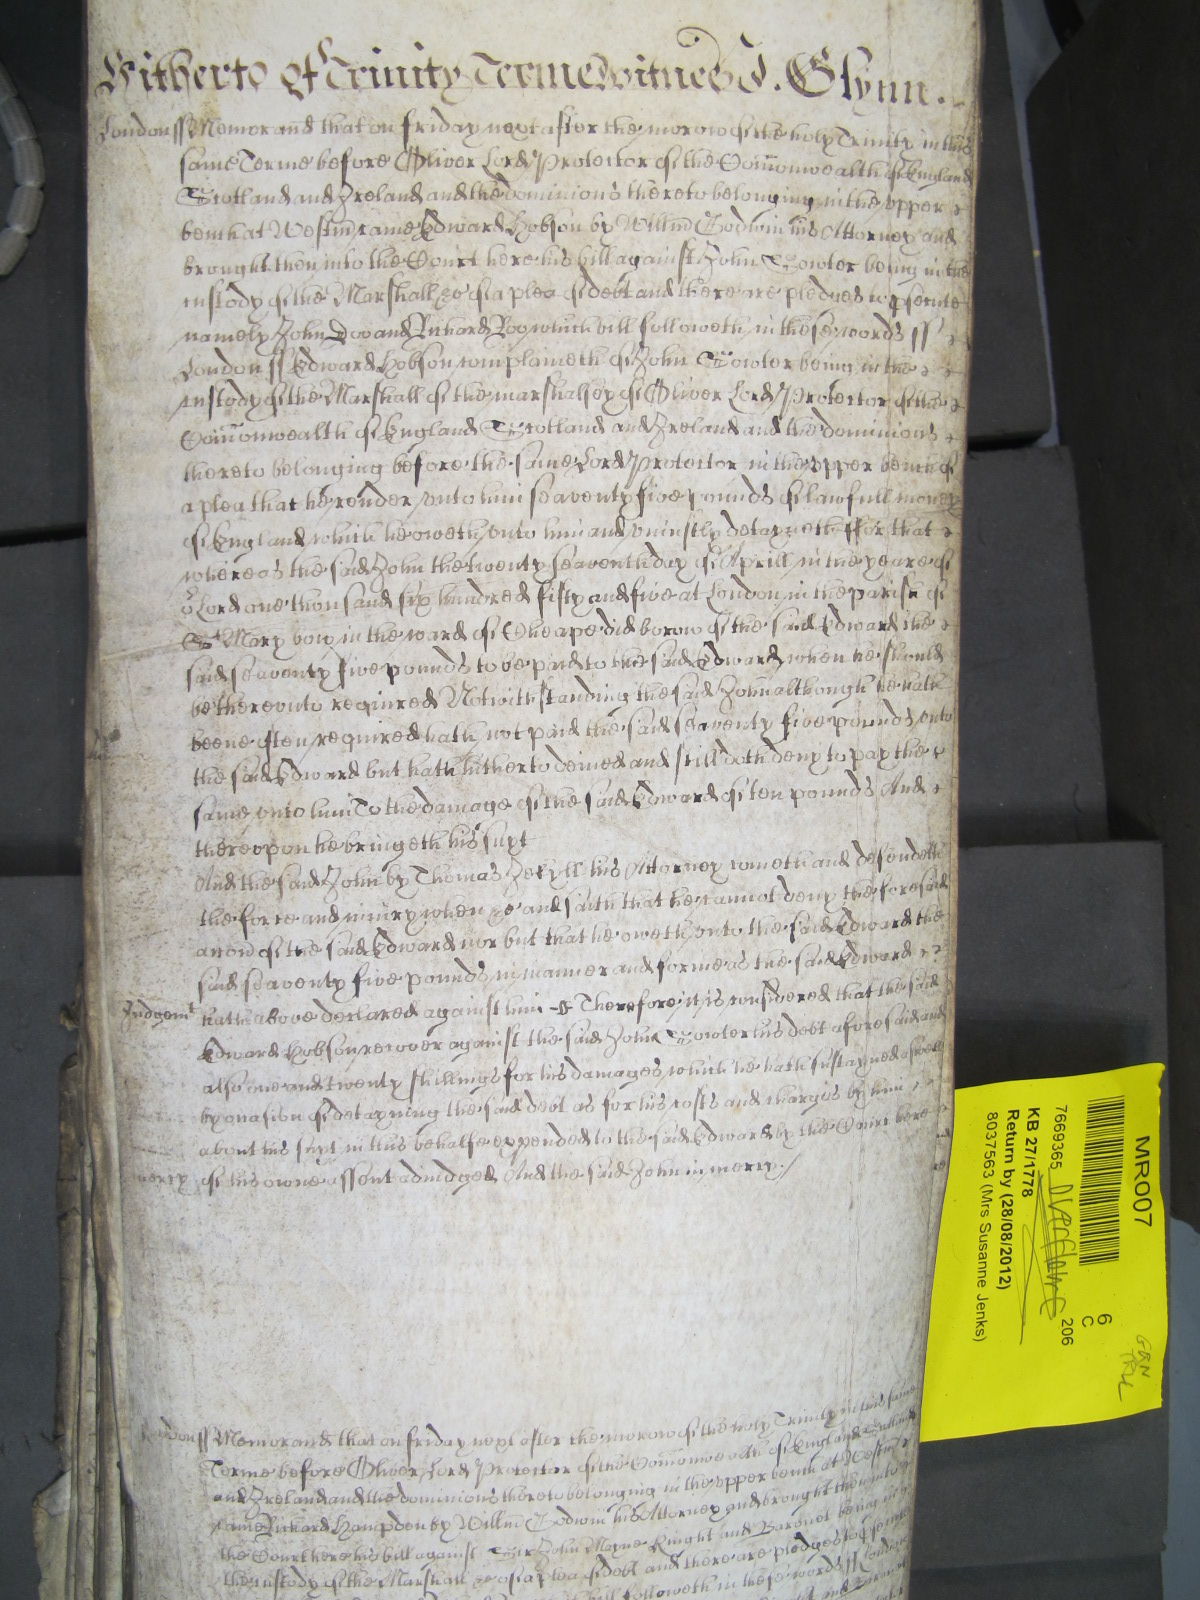 Hitherto of Trinity Terme witnes J. Glynn.
London ss Memorand that on friday next after the morow of the holy Trinity in this
same Terme before Oliver Lord Protector of the Comonwealth of England
Scotland and Ireland and the dominions thereto belonging in the upper
bench at Westm came Edward Hobson by Willm Godwin his Attorney and
brought then into the Court here his bill against John Fowler being in the
custody of the Marshall &c of a plea of debt and there are pledges to psecute
namely John Doo and Richard Roo which bill followeth in these words ss
London ss Edward Hobson complaineth of John Fowler being in the
custody of the Marshall of the marshalsey of Oliver Lord Protector of the
Comonwealth of England Scotland and Ireland and the dominions
thereto belonging before the same Lord Protector in the upper bench of
a plea that he render unto him seaventy five pounds of lawfull money
of England which he oweth unto him and uniustly detayneth ffor that
whereas the said John the twenty seaventh day of Aprill in the yeare of
or Lord one thousand six hundred fifty and five at London in the parish of
St Mary bow in the ward of Cheape did borow of the said Edward the
said seaventy five pounds to be paid to the said Edward when he should
be thereunto required Notwithstanding the said John although he hath
beene often required hath not paid the said seaventy five pounds unto
the said Edward but hath hitherto denied and still doth deny to pay the
same unto him To the damage of the said Edward of ten pounds And
thereupon he bringeth his suyt
And the said John by Thomas Jekyll his Attorney cometh and defendeth
the force and iniury when &c and saith that he cannot deny the foresaid
accon of the said Edward nor but that he oweth unto the said Edward the
said seaventy five pounds in manner and forme as the said Edward
Judgemt hath above declared against him &c Therefore it is considered that the said
Edward Hobson recover against the said John Fowler his debt aforesaid and
also one and twenty shillings for his damages which he hath sustayned aswell
by occasion of detayning the said debt as for his costs and charges by him
about his suyt in this behalfe expended to the said Edward by the Court here
mercy of his owne assent adiudged And the said John in mercy
London ss Memorand that on friday next after the morow of the holy Trinity in this same
Terme before Oliver Lord Protector of the Comonwealth of England Scotland
and Ireland and the dominions thereto belonging in the upper bench at Westm
came Richard Hampden by Willm Godwin his Attorney and brought then into
the Court here his bill against Sir John Mayne Knight and Baronet being in
the custody of the Marshall &c of a plea of debt and there are pledges to psecute
bill followeth in these words ss London
and Baronet
MR007
6
C
7669365
206
KB 27/1778
Return by (28/08/2012)
8037563 (Mrs Susanne Jenks)